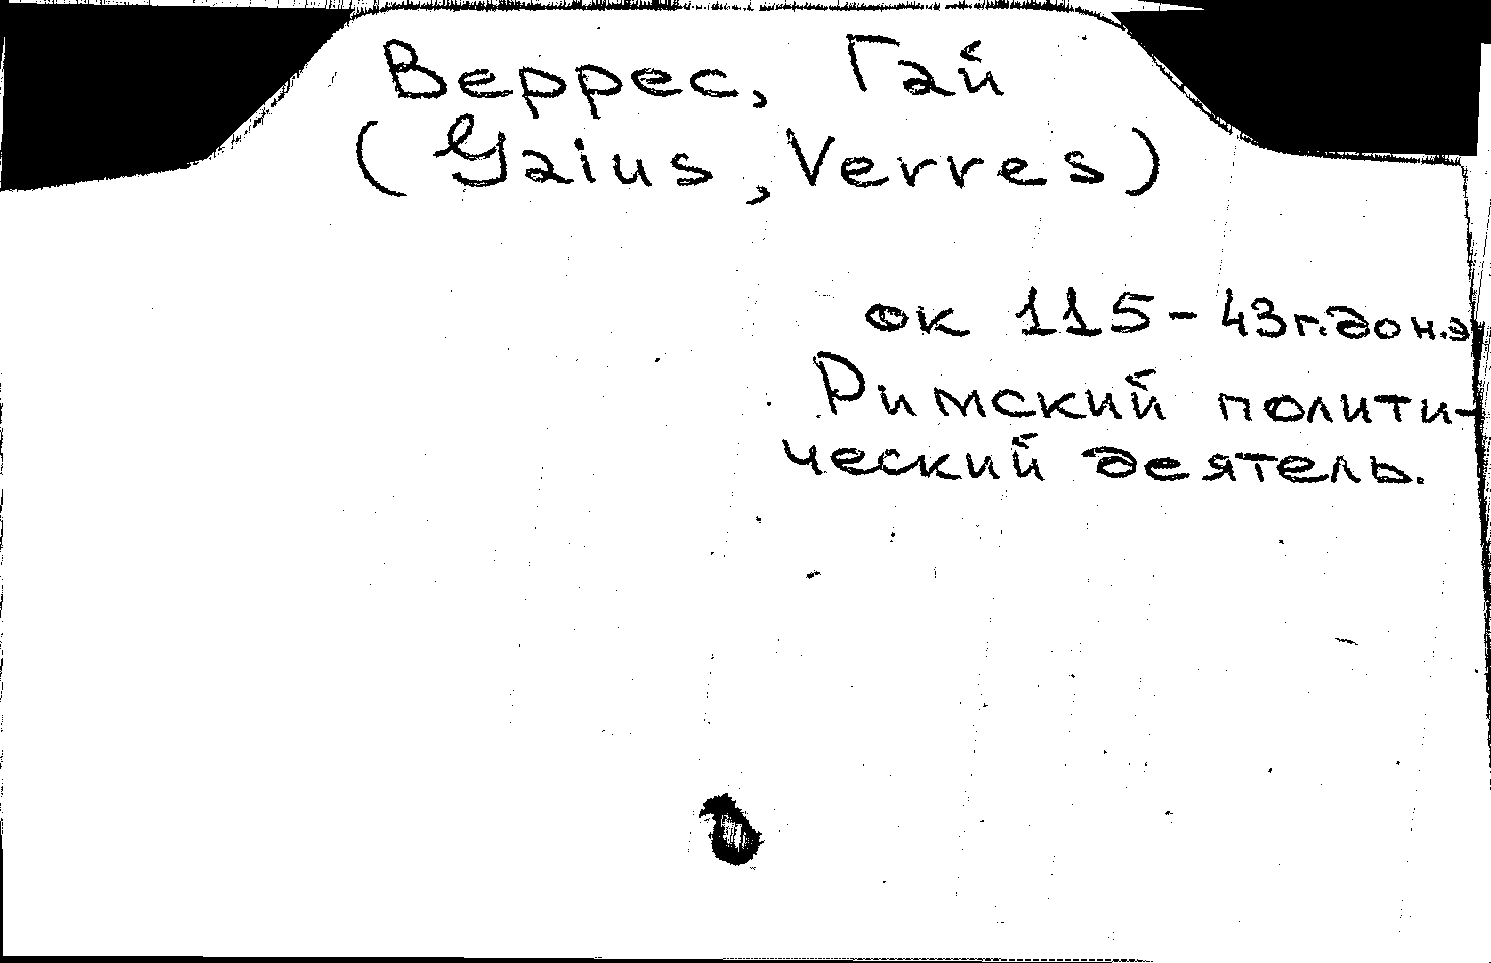 Веррес, Гай
(Gaius, Verres)
ок 115-43г.до н.э
Римский полити-
ческий деятель.